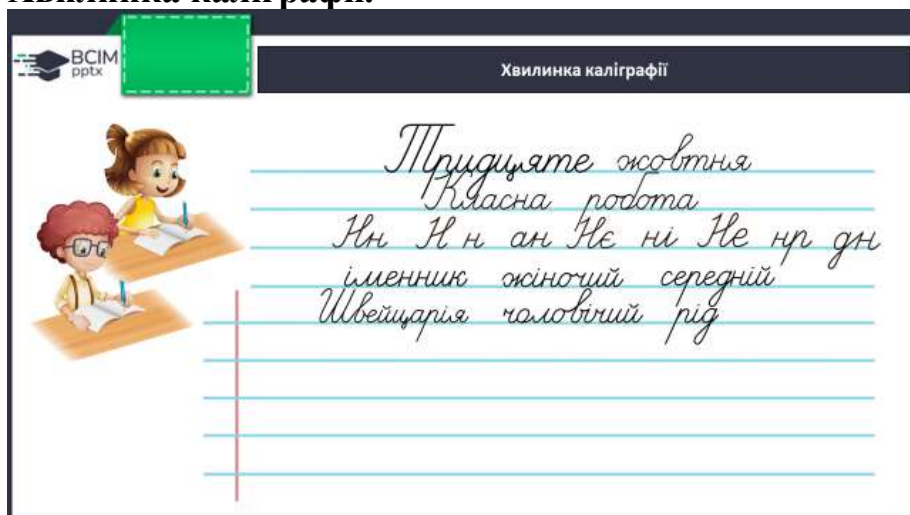 Хвилинка каліграфії.
ВСІМ
pptx
Хвилинка каліграфії
Тридцяте жовтня
Класна робота
Нн Н н ан Нє ні Не нр дн
іменник жіночий середній
Швейцарія чоловічий рід